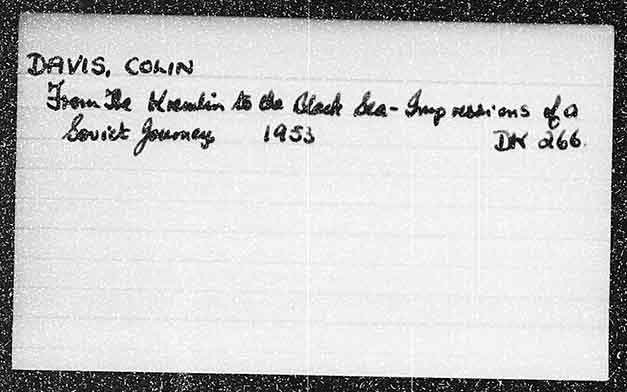 DAVIS, COLIN
From The Kremlin to the Black Sea - Impressions of a
Soviet Journey 1953 DK 266.